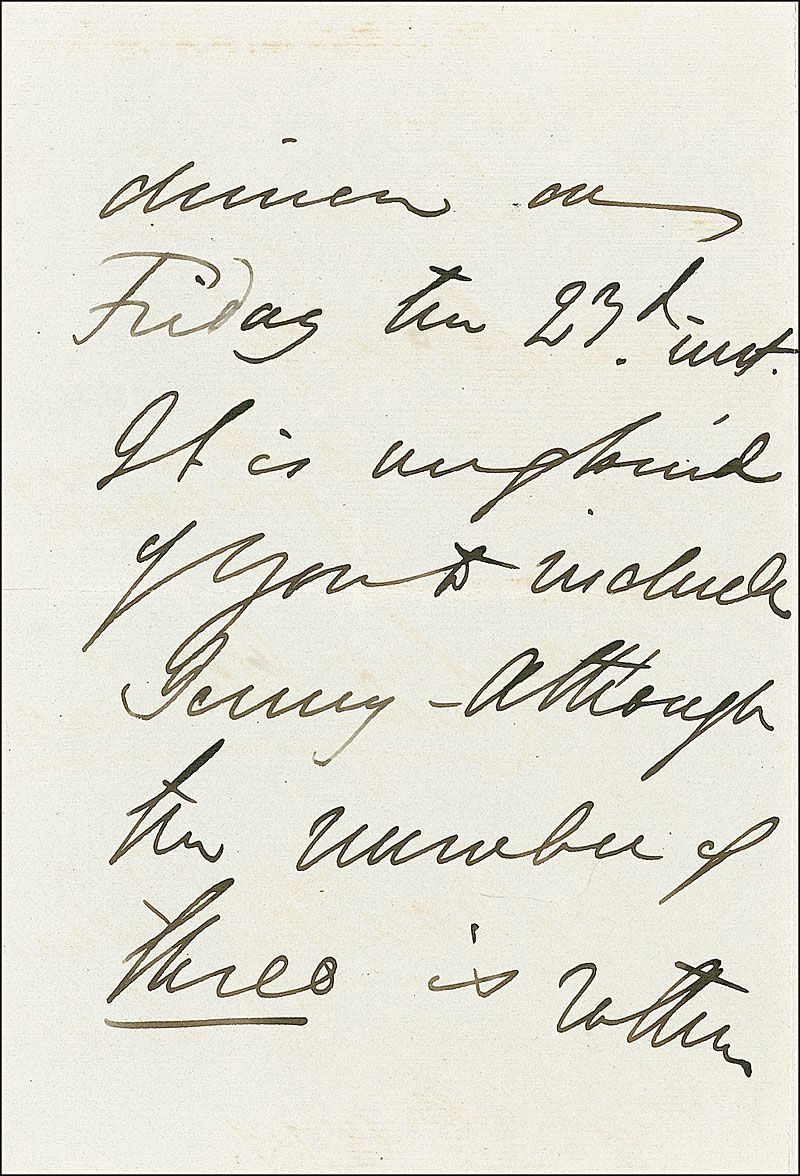 dinner on
Friday the 23d. inst.
It is very kind
of you to include
Jenny - Although
the number of
three is rather